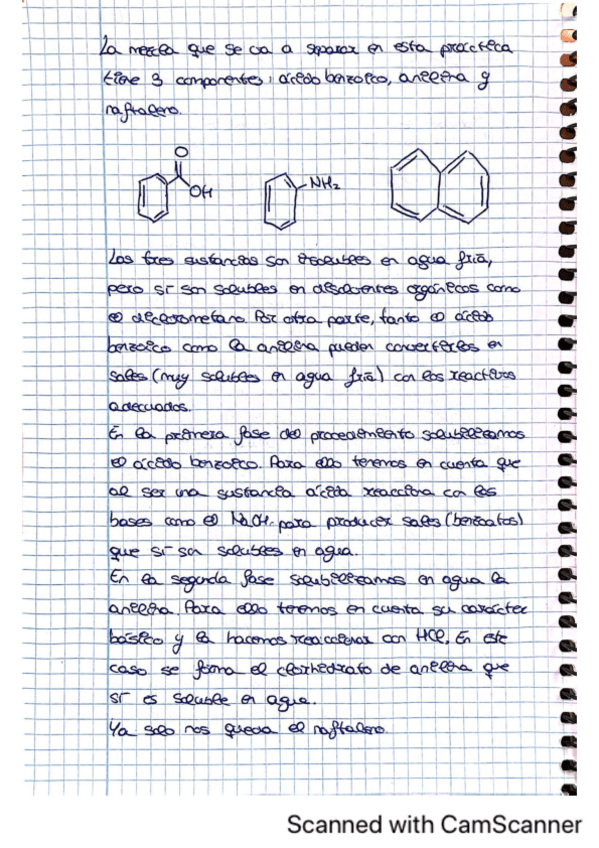 La mezcla que se va a separar en esta práctica
tiene 3 componentes: ácido benzoico, anilina y
naftaleno.
O
OH
NH2
Las tres sustancias son insolubles en agua fría,
pero sí son solubles en disolventes orgánicos como
el diclorometano. Por otra parte, tanto el ácido
benzoico como la anilina pueden convertirlos en
sales (muy solubles en agua fría) con los reactivos
adecuados.
En la primera fase del procedimiento solubilizamos
el ácido benzoico. Para ello tenemos en cuenta que
al ser una sustancia ácida reacciona con las
bases como el NaOH para producir sales (benzoatos)
que sí son solubles en agua.
En la segunda fase solubilizamos en agua la
anilina. Para ello tenemos en cuenta su carácter
básico y la hacemos reaccionar con HCl. En este
caso se forma el clorhidrato de anilina que
sí es soluble en agua.
Ya solo nos queda el naftaleno.
Scanned with CamScanner